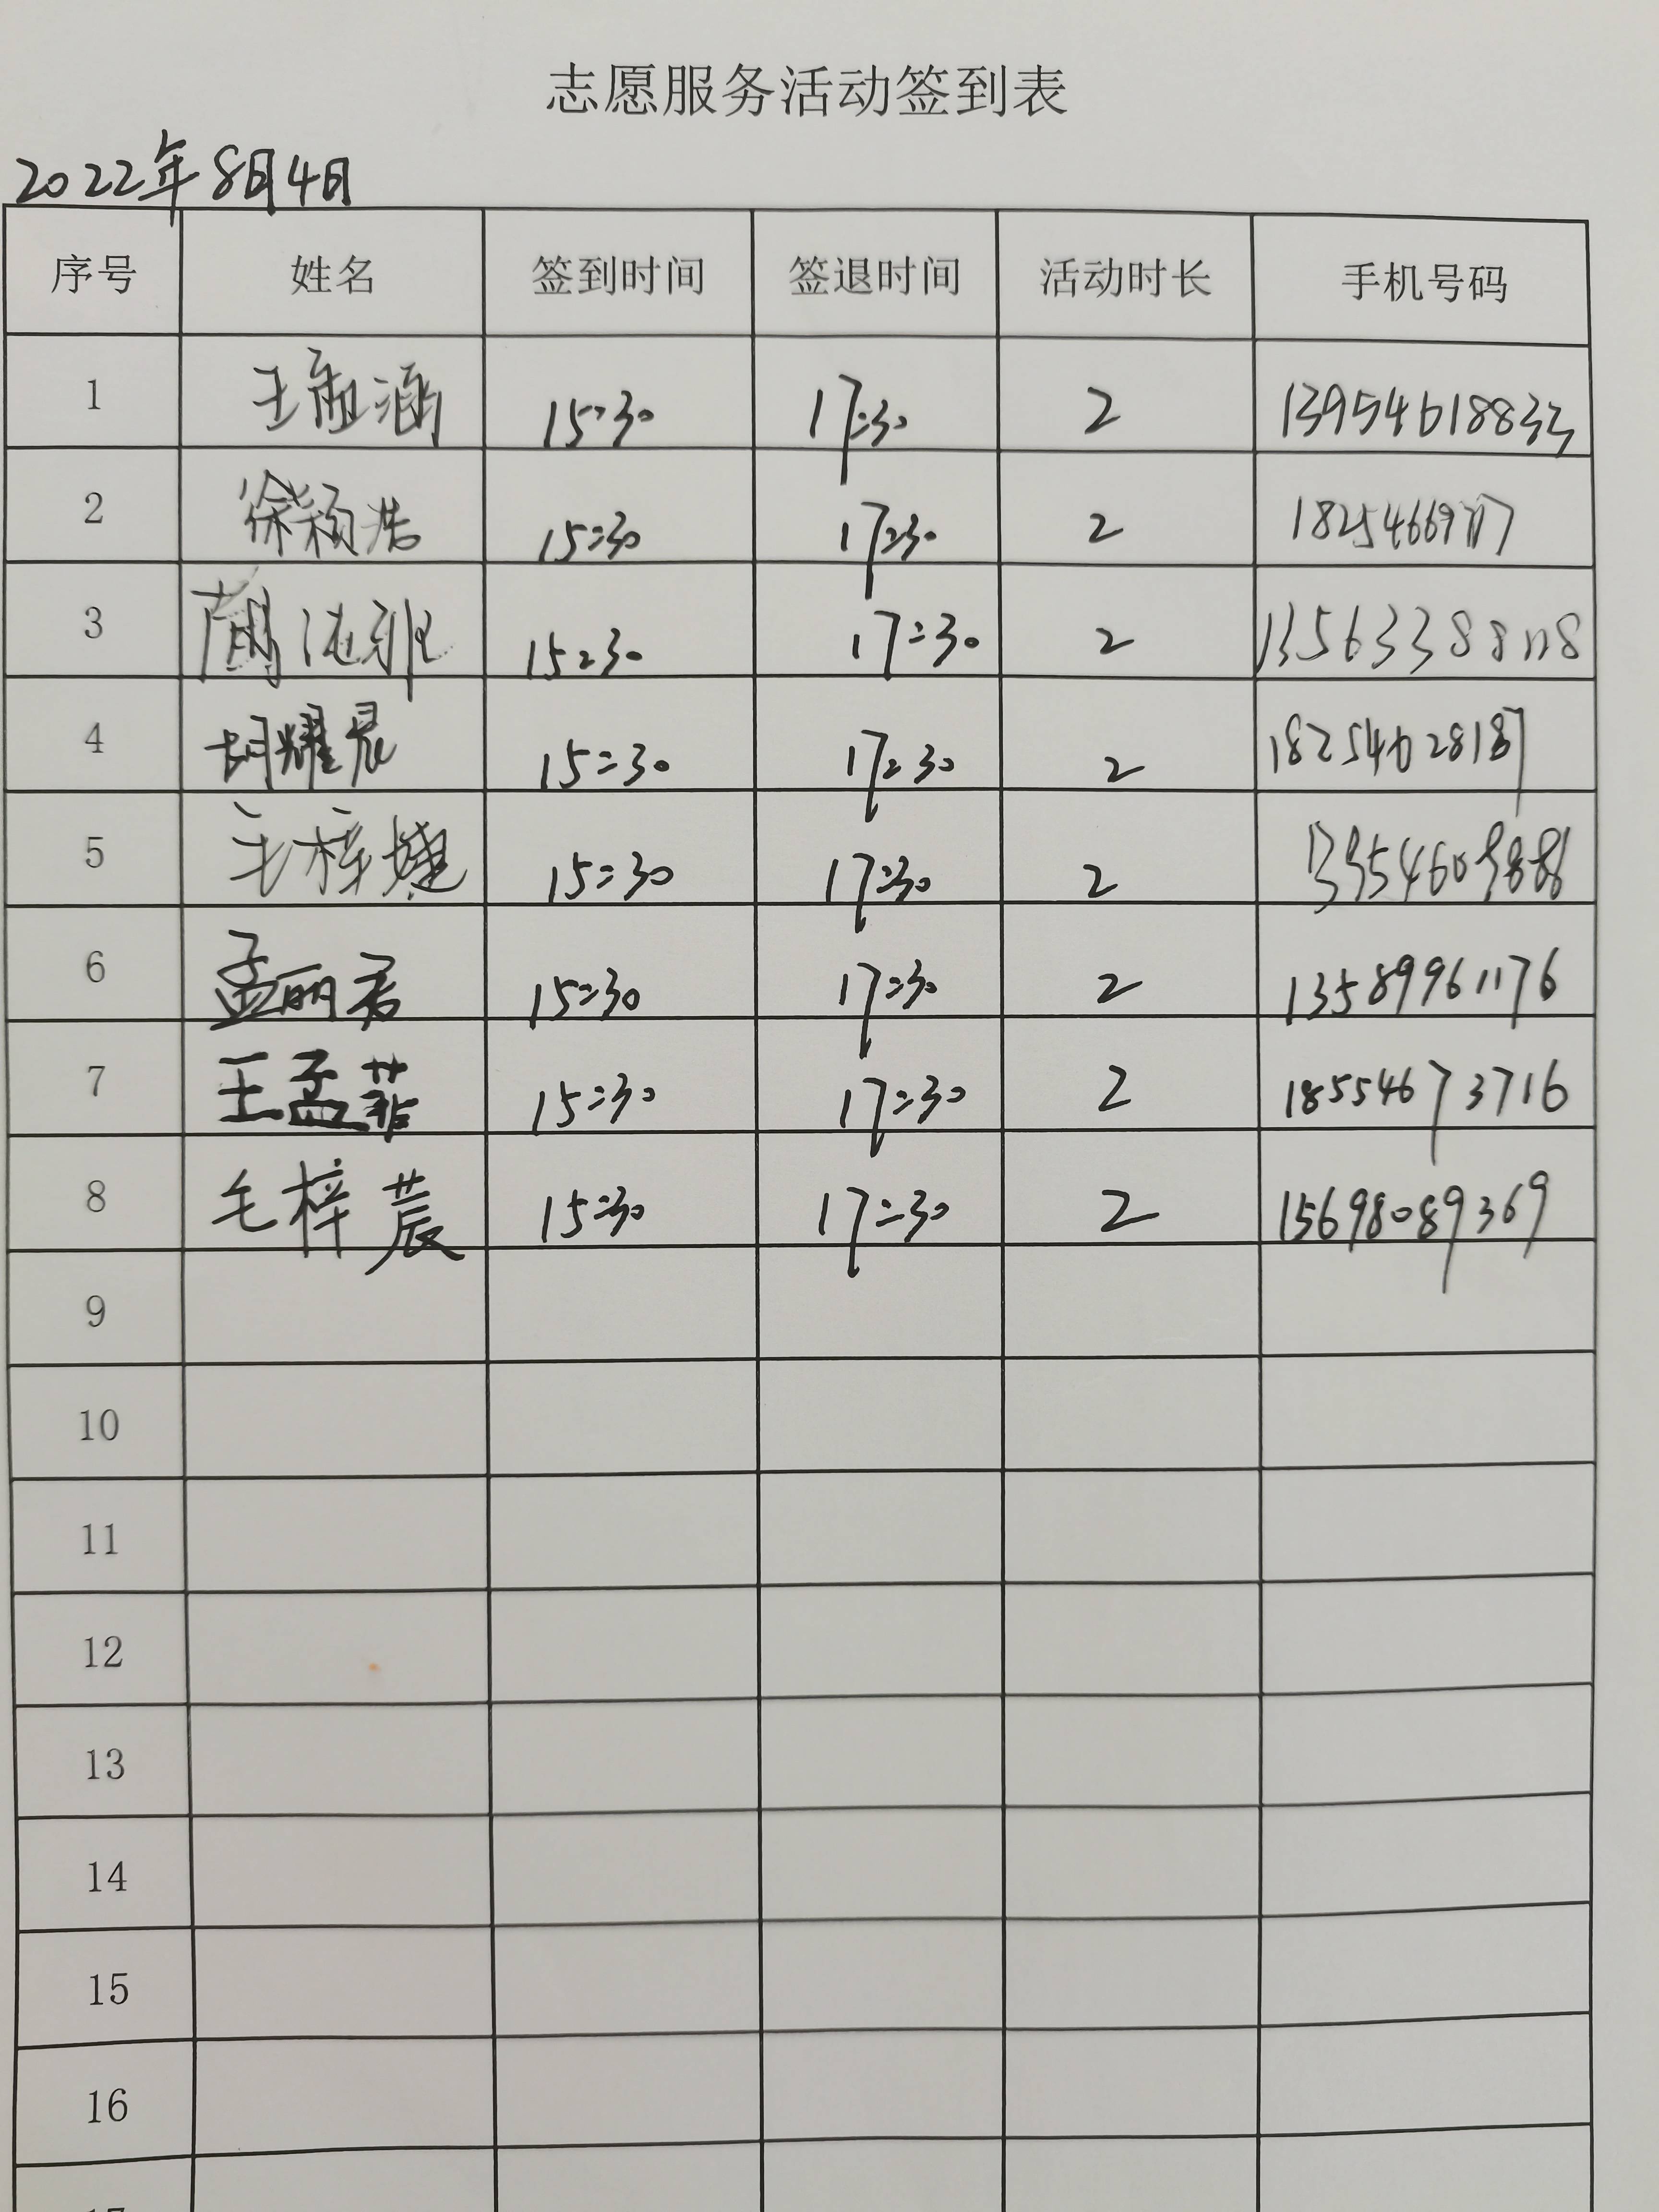 志愿服务活动签到表
2022年8月4日
序号 姓名 签到时间 签退时间 活动时长 手机号码
1 王 涵 15:30 17:30 2 13954618833
2 徐 浩 15:30 17:30 2
3 15:30 17:30 2
4 胡耀晨 15:30 17:30 2
5 王梓婕 15:30 17:30 2
6 孟丽君 15:30 17:30 2 13589961176
7 王孟菲 15:30 17:30 2 18554673716
8 毛梓莀 15:30 17:30 2 15698089369
9
10
11
12
13
14
15
16